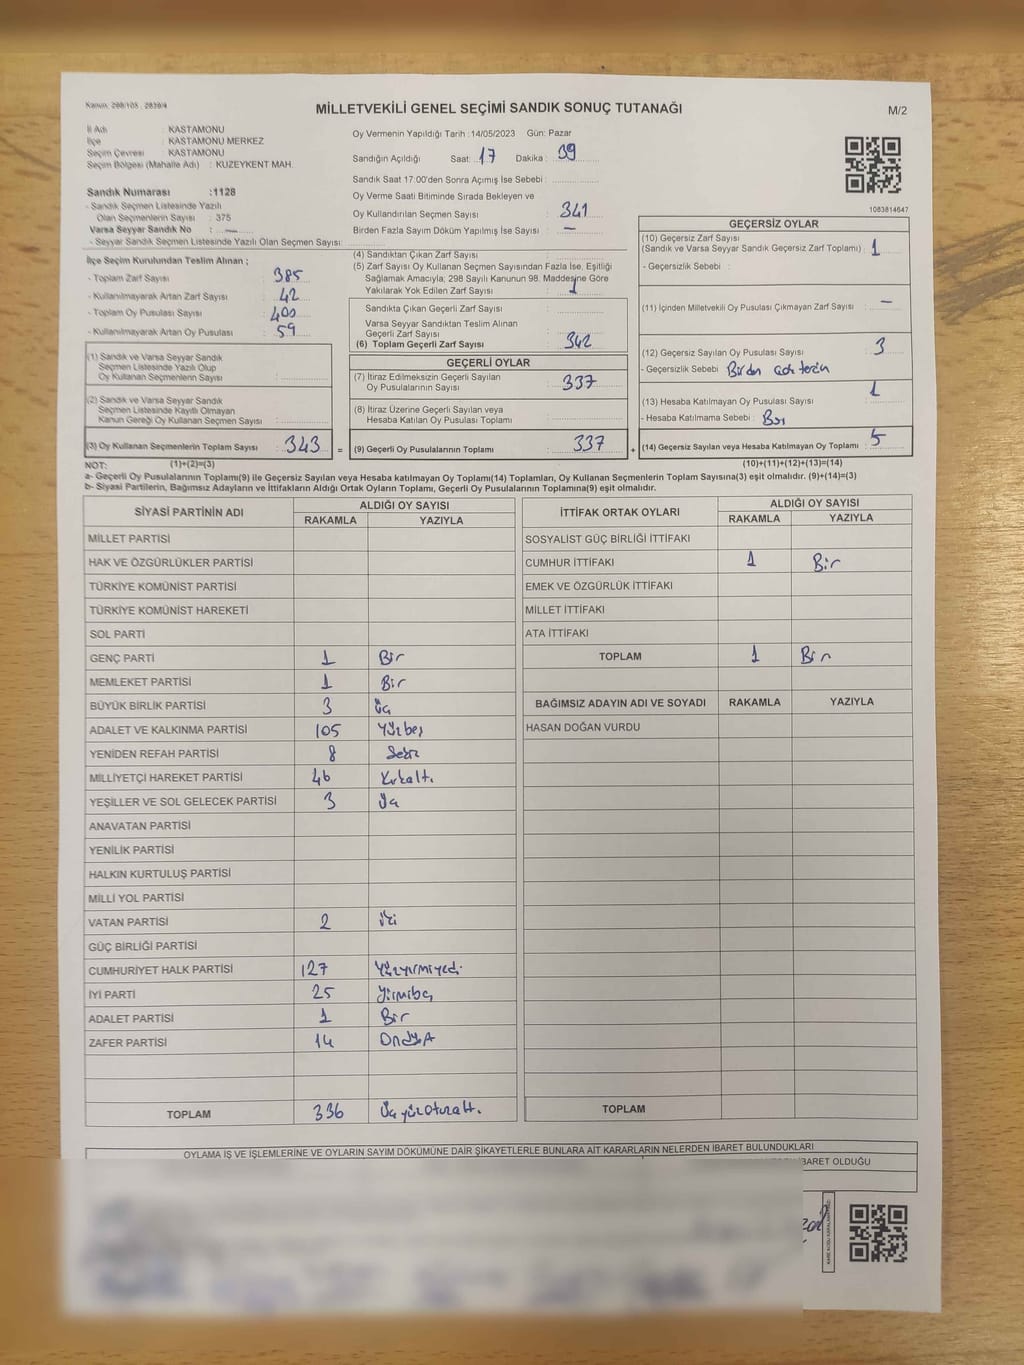 Kanun: 298/105 , 2839/4
MİLLETVEKİLİ GENEL SEÇİMİ SANDIK SONUÇ TUTANAĞI
M/2
İl Adı : KASTAMONU
İlçe : KASTAMONU MERKEZ
Seçim Çevresi : KASTAMONU
Seçim Bölgesi (Mahalle Adı) : KUZEYKENT MAH.
Sandık Numarası :1128
- Sandık Seçmen Listesinde Yazılı
Olan Seçmenlerin Sayısı : 375
Varsa Seyyar Sandık No : —
- Seyyar Sandık Seçmen Listesinde Yazılı Olan Seçmen Sayısı:
Oy Vermenin Yapıldığı Tarih :14/05/2023 Gün: Pazar
Sandığın Açıldığı Saat: 17 Dakika : 39
Sandık Saat 17:00'den Sonra Açımış İse Sebebi :
Oy Verme Saati Bitiminde Sırada Bekleyen ve
Oy Kullandırılan Seçmen Sayısı : 341
Birden Fazla Sayım Döküm Yapılmış İse Sayısı : —
1083814647
İlçe Seçim Kurulundan Teslim Alınan ;
- Toplam Zarf Sayısı : 385
- Kullanılmayarak Artan Zarf Sayısı : 42
- Toplam Oy Pusulası Sayısı : 400
- Kullanılmayarak Artan Oy Pusulası : 59
(1) Sandık ve Varsa Seyyar Sandık
Seçmen Listesinde Yazılı Olup
Oy Kullanan Seçmenlerin Sayısı :
(2) Sandık ve Varsa Seyyar Sandık
Seçmen Listesinde Kayıtlı Olmayan
Kanun Gereği Oy Kullanan Seçmen Sayısı :
(3) Oy Kullanan Seçmenlerin Toplam Sayısı : 343 =
(4) Sandıktan Çıkan Zarf Sayısı :
(5) Zarf Sayısı Oy Kullanan Seçmen Sayısından Fazla İse, Eşitliği
Sağlamak Amacıyla; 298 Sayılı Kanunun 98. Maddesine Göre
Yakılarak Yok Edilen Zarf Sayısı : 1
Sandıkta Çıkan Geçerli Zarf Sayısı :
Varsa Seyyar Sandıktan Teslim Alınan
Geçerli Zarf Sayısı :
(6) Toplam Geçerli Zarf Sayısı : 342
GEÇERLİ OYLAR
(7) İtiraz Edilmeksizin Geçerli Sayılan
Oy Pusulalarının Sayısı : 337
(8) İtiraz Üzerine Geçerli Sayılan veya
Hesaba Katılan Oy Pusulaları Toplamı :
(9) Geçerli Oy Pusulalarının Toplamı : 337 +
GEÇERSİZ OYLAR
(10) Geçersiz Zarf Sayısı
(Sandık ve Varsa Seyyar Sandık Geçersiz Zarf Toplamı) : 1
- Geçersizlik Sebebi :
(11) İçinden Milletvekili Oy Pusulası Çıkmayan Zarf Sayısı : —
(12) Geçersiz Sayılan Oy Pusulası Sayısı : 3
- Geçersizlik Sebebi : Birden
(13) Hesaba Katılmayan Oy Pusulası Sayısı : 1
- Hesaba Katılmama Sebebi :
(14) Geçersiz Sayılan veya Hesaba Katılmayan Oy Toplamı : 5
NOT: (1)+(2)=(3)
(10)+(11)+(12)+(13)=(14)
a- Geçerli Oy Pusulalarının Toplamı(9) ile Geçersiz Sayılan veya Hesaba katılmayan Oy Toplamı(14) Toplamları, Oy Kullanan Seçmenlerin Toplam Sayısına(3) eşit olmalıdır. (9)+(14)=(3)
b- Siyasi Partilerin, Bağımsız Adayların ve İttifakların Aldığı Ortak Oyların Toplamı, Geçerli Oy Pusulalarının Toplamına(9) eşit olmalıdır.
SİYASİ PARTİNİN ADI
ALDIĞI OY SAYISI
RAKAMLA YAZIYLA
MİLLET PARTİSİ
HAK VE ÖZGÜRLÜKLER PARTİSİ
TÜRKİYE KOMÜNİST PARTİSİ
TÜRKİYE KOMÜNİST HAREKETİ
SOL PARTİ
GENÇ PARTİ 1 Bir
MEMLEKET PARTİSİ 1 Bir
BÜYÜK BİRLİK PARTİSİ 3 Üç
ADALET VE KALKINMA PARTİSİ 105 Yüzbeş
YENİDEN REFAH PARTİSİ 8 Sekiz
MİLLİYETÇİ HAREKET PARTİSİ 46 Kırkaltı
YEŞİLLER VE SOL GELECEK PARTİSİ 3 Üç
ANAVATAN PARTİSİ
YENİLİK PARTİSİ
HALKIN KURTULUŞ PARTİSİ
MİLLİ YOL PARTİSİ
VATAN PARTİSİ 2 İki
GÜÇ BİRLİĞİ PARTİSİ
CUMHURİYET HALK PARTİSİ 127 Yüzyirmiyedi
İYİ PARTİ 25 Yirmibeş
ADALET PARTİSİ 1 Bir
ZAFER PARTİSİ 14 Ondört
TOPLAM 336 Üçyüzotuzaltı
İTTİFAK ORTAK OYLARI
ALDIĞI OY SAYISI
RAKAMLA YAZIYLA
SOSYALİST GÜÇ BİRLİĞİ İTTİFAKI
CUMHUR İTTİFAKI 1 Bir
EMEK VE ÖZGÜRLÜK İTTİFAKI
MİLLET İTTİFAKI
ATA İTTİFAKI
TOPLAM 1 Bir
BAĞIMSIZ ADAYIN ADI VE SOYADI RAKAMLA YAZIYLA
HASAN DOĞAN VURDU
TOPLAM
OYLAMA İŞ VE İŞLEMLERİNE VE OYLARIN SAYIM DÖKÜMÜNE DAİR ŞİKAYETLERLE BUNLARA AİT KARARLARIN NELERDEN İBARET BULUNDUKLARI
İBARET OLDUĞU